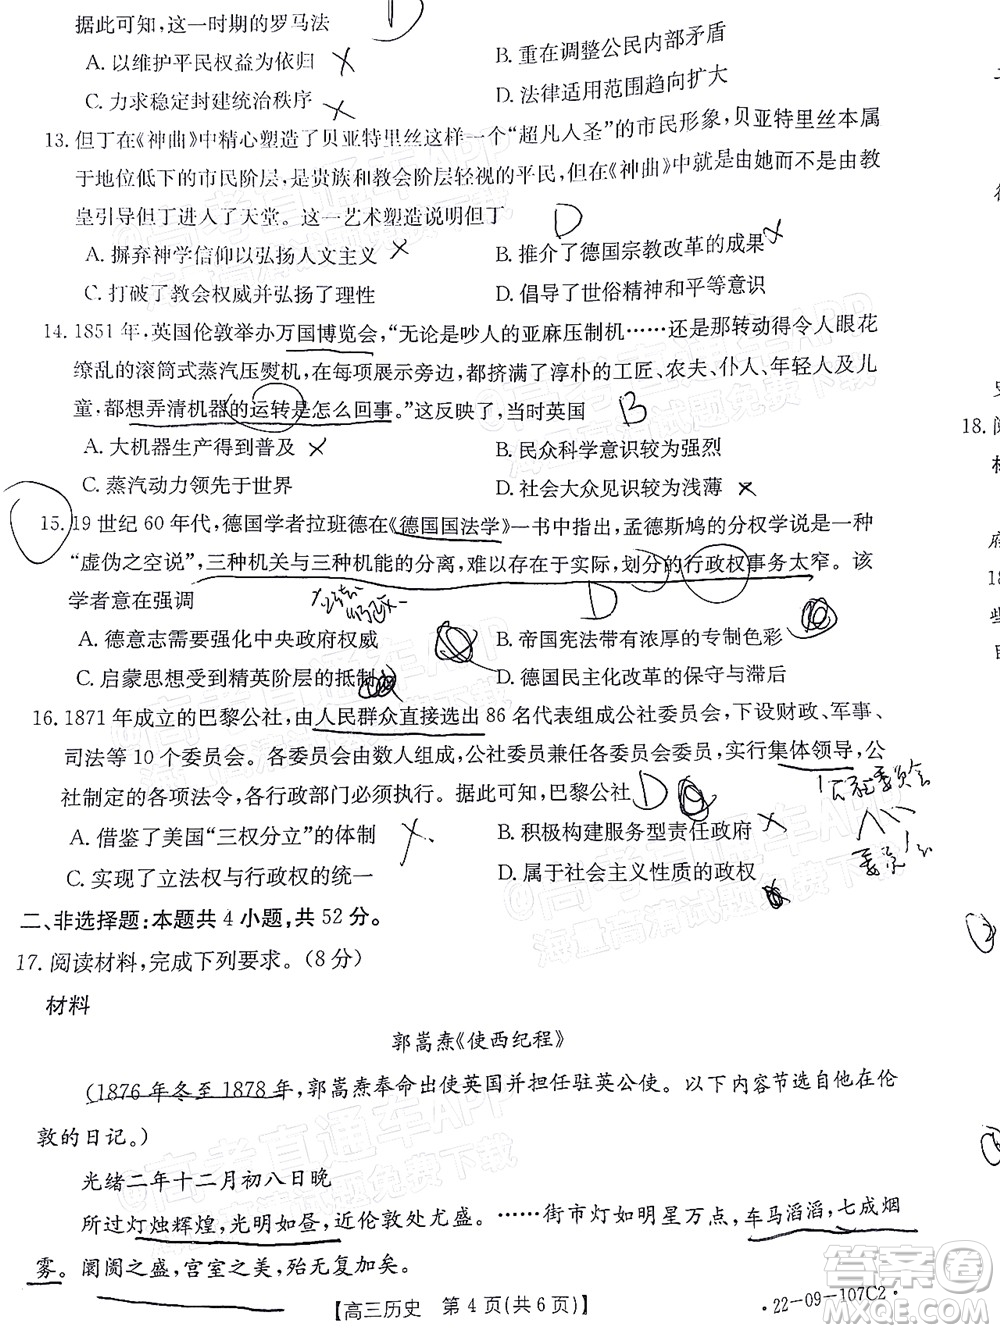 据此可知,这一时期的罗马法
D
A. 以维护平民权益为依归
B. 重在调整公民内部矛盾
C. 力求稳定封建统治秩序
D. 法律适用范围趋向扩大
13. 但丁在《神曲》中精心塑造了贝亚特里丝这样一个“超凡人圣”的市民形象,贝亚特里丝本属
于地位低下的市民阶层,是贵族和教会阶层轻视的平民,但在《神曲》中,却是由她而不是由教
皇引导但丁进入了天堂。这一艺术塑造说明但丁 D
A. 摒弃神学信仰以弘扬人文主义
B. 推介了德国宗教改革的成果
C. 打破了教会权威并弘扬了理性
D. 倡导了世俗精神和平等意识
14. 1851 年,英国伦敦举办万国博览会,“无论是吵人的亚麻压制机……还是那转动得令人眼花
缭乱的滚筒式蒸汽压熨机,在每项展示旁边,都挤满了淳朴的工匠、农夫、仆人、年轻人及儿
童,都想弄清机器的运转是怎么回事。”这反映了,当时英国 B
A. 大机器生产得到普及
B. 民众科学意识较为强烈
C. 蒸汽动力领先于世界
D. 社会大众见识较为浅薄
15. 19 世纪 60 年代,德国学者拉班德在《德国国法学》一书中指出,孟德斯鸠的分权学说是一种
“虚伪之空说”,三种机关与三种机能的分离,难以存在于实际,划分的行政权事务太窄。该
学者意在强调
D
A. 德意志需要强化中央政府权威
B. 帝国宪法带有浓厚的专制色彩
C. 启蒙思想受到精英阶层的抵制
D. 德国民主化改革的保守与滞后
16. 1871 年成立的巴黎公社,由人民群众直接选出 86 名代表组成公社委员会,下设财政、军事、
司法等 10 个委员会。各委员会由数人组成,公社委员兼任各委员会委员,实行集体领导,公
社制定的各项法令,各行政部门必须执行。据此可知,巴黎公社 D
A. 借鉴了美国“三权分立”的体制
B. 积极构建服务型责任政府
C. 实现了立法权与行政权的统一
D. 属于社会主义性质的政权
二、非选择题:本题共 4 小题,共 52 分。
17. 阅读材料,完成下列要求。(8 分)
材料
郭嵩焘《使西纪程》
(1876 年冬至 1878 年,郭嵩焘奉命出使英国并担任驻英公使。以下内容节选自他在伦
敦的日记。)
光绪二年十二月初八日晚
所过灯烛辉煌,光明如昼,近伦敦处尤盛。……街市灯如明星万点,车马滔滔,七成烟
雾。阛阓之盛,宫室之美,殆无复加矣。
【高三历史 第 4 页(共 6 页)】
·22-09-107C2·
18.
答案圈
MXQE.COM